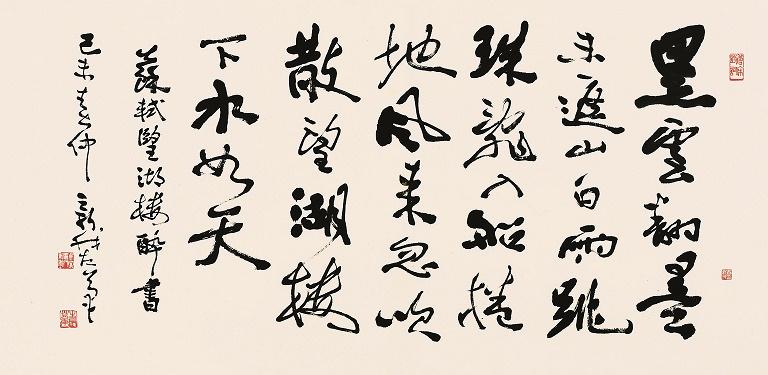 黑雲翻墨
未遮山白雨跳
珠亂入船捲
地風来忽吹
散望湖樓
下水如天
蘇軾望湖樓醉書
己未春仲